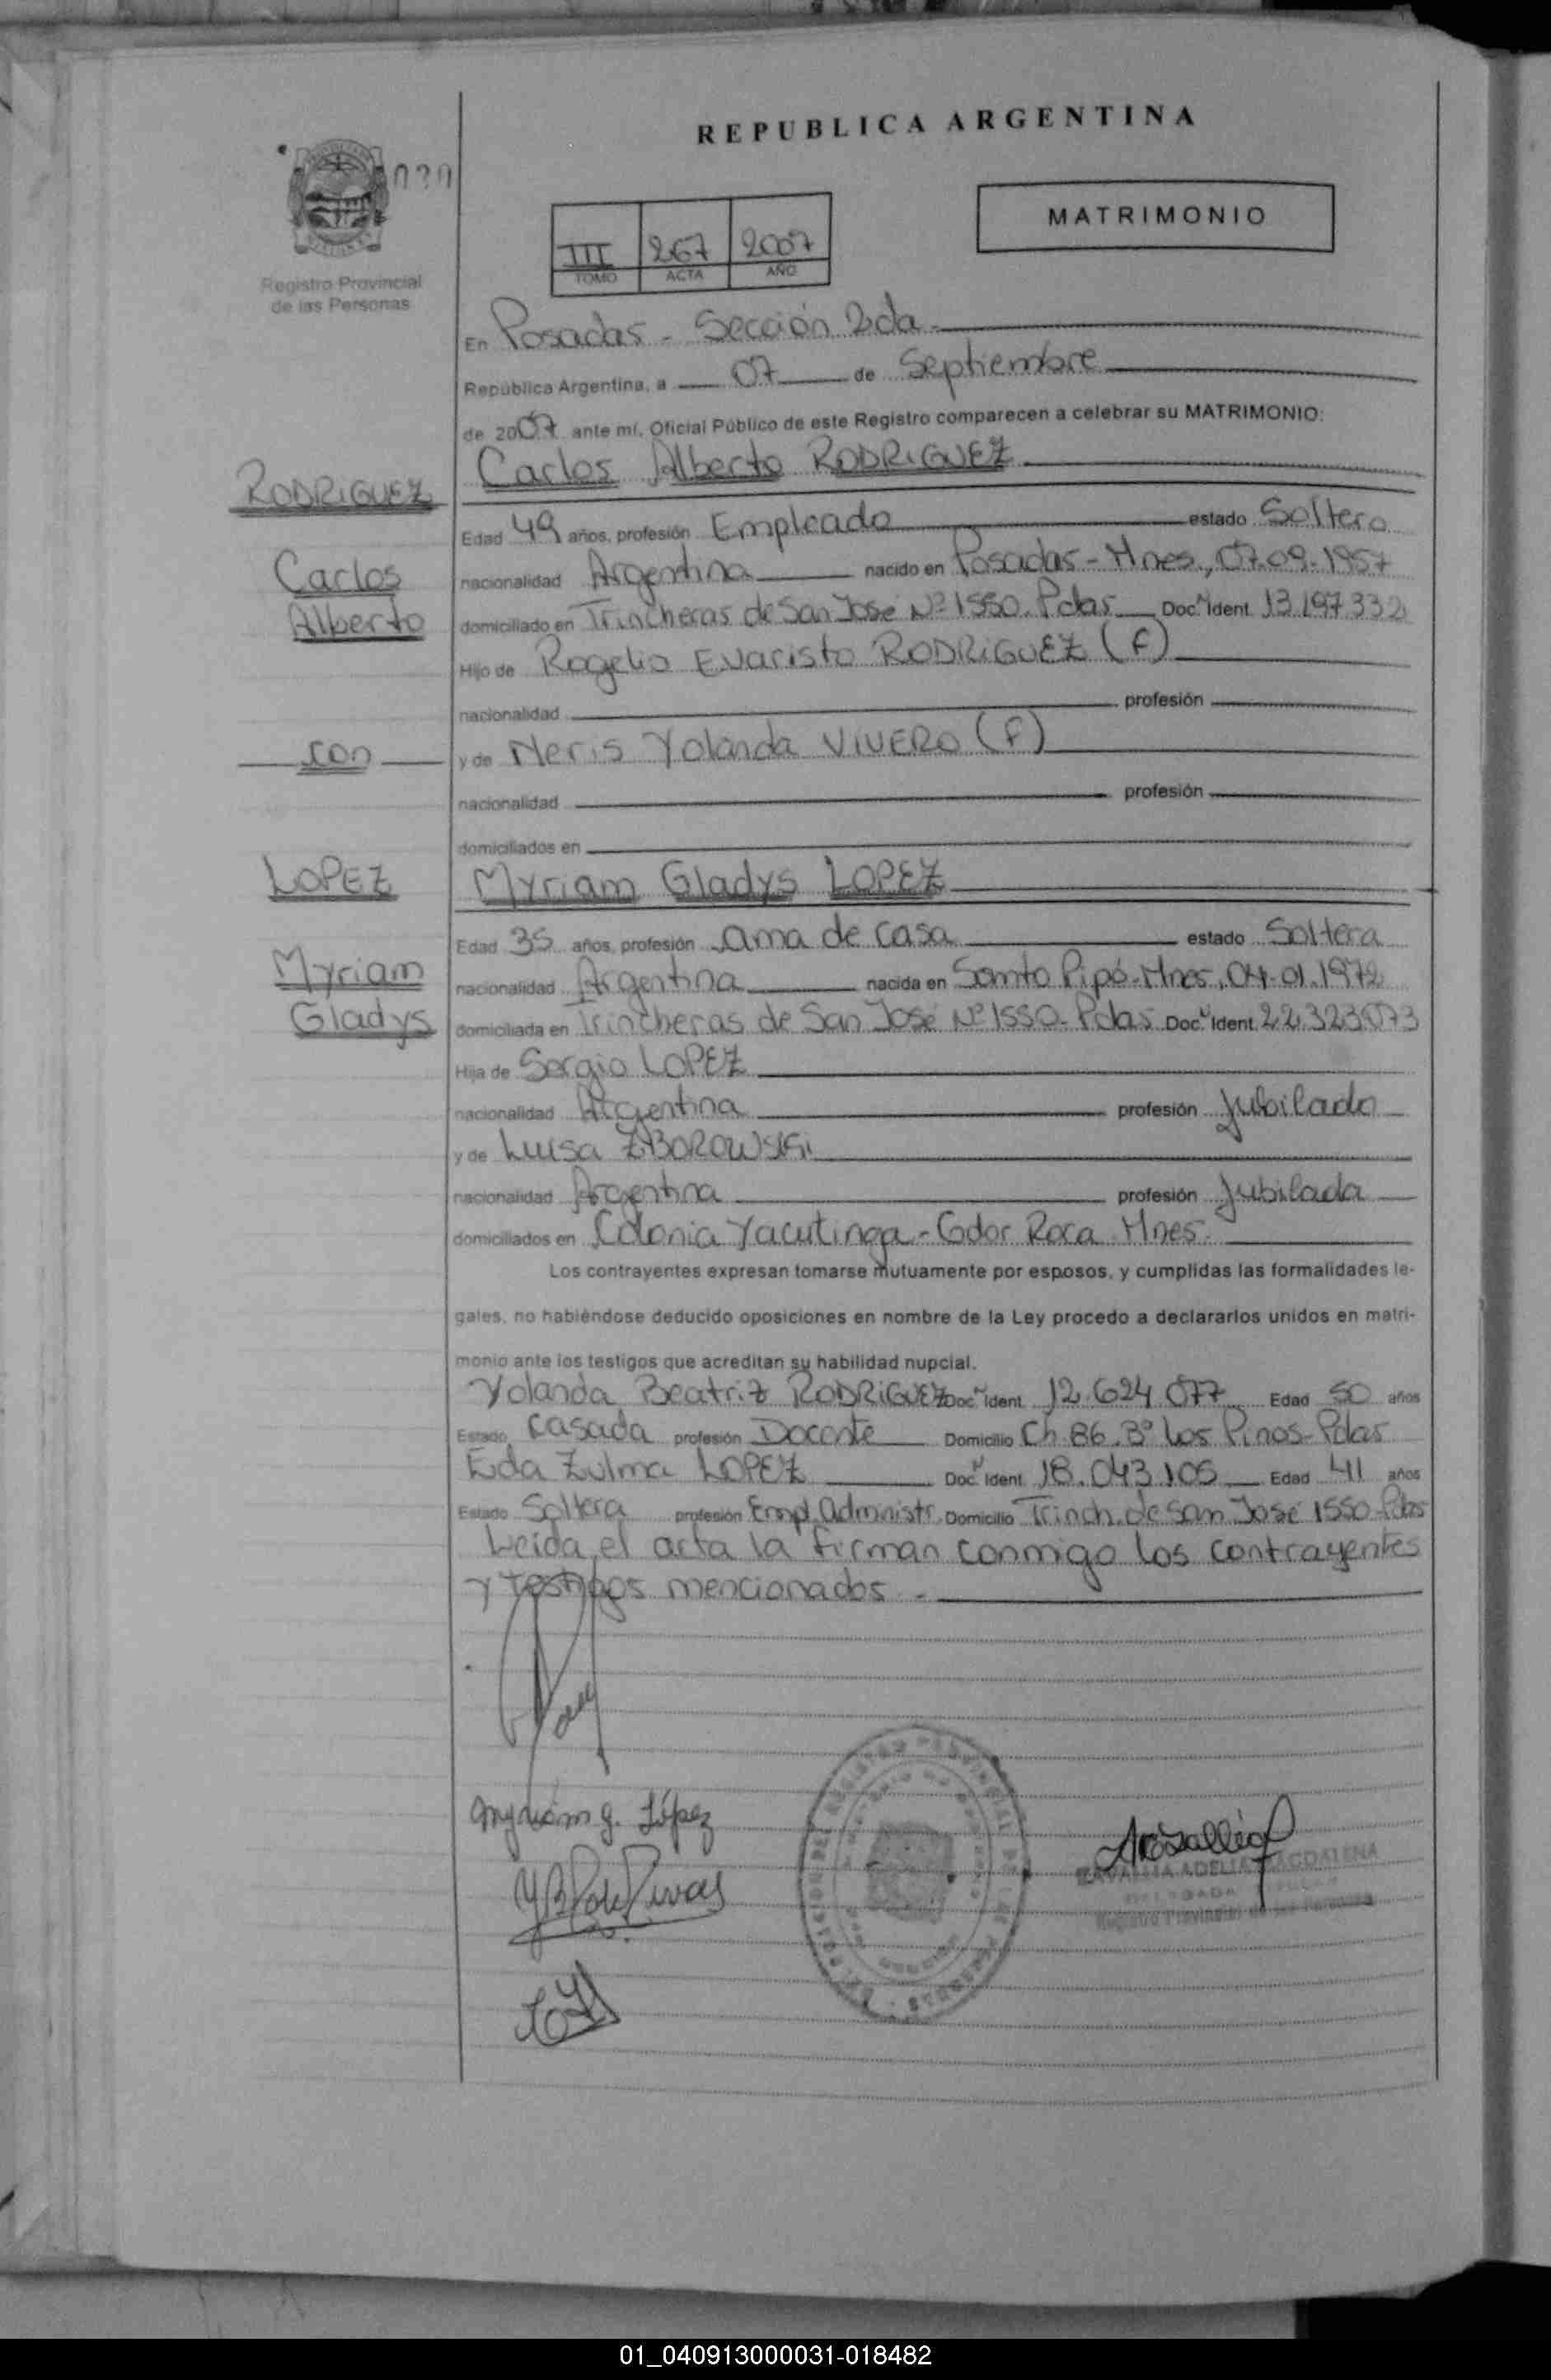 REPUBLICA ARGENTINA
MATRIMONIO
III 267 2007
TOMO ACTA AÑO
Registro Provincial
de las Personas
En Posadas - Sección 2da.
República Argentina, a 07 de Septiembre
de 2007 ante mí, Oficial Público de este Registro comparecen a celebrar su MATRIMONIO:
Carlos Alberto RODRIGUEZ
RODRIGUEZ
Edad 49 años, profesión Empleado estado Soltero
Carlos
nacionalidad Argentina nacido en Posadas - Mnes, 07.09.1957
Alberto
domiciliado en Trincheras de San José Nº 1550. Pdas Doc. N Ident. 13.197.332
Hijo de Rogelio Evaristo RODRIGUEZ (F)
nacionalidad profesión
con
y de Neris Yolanda VIVERO (F)
nacionalidad profesión
domiciliados en
LOPEZ
Myriam Gladys LOPEZ
Edad 35 años, profesión ama de casa estado Soltera
Myriam
nacionalidad Argentina nacida en Santo Pipó - Mnes, 04.01.1972
Gladys
domiciliada en Trincheras de San José Nº 1550 - Pdas Doc. N Ident. 22.323.073
Hija de Sergio LOPEZ
nacionalidad Argentina profesión Jubilado
y de Luisa ZBOROWSKI
nacionalidad Argentina profesión Jubilada
domiciliados en Colonia Yacutinga - Gdor Roca. Mnes.
Los contrayentes expresan tomarse mutuamente por esposos, y cumplidas las formalidades le-
gales, no habiéndose deducido oposiciones en nombre de la Ley procedo a declararlos unidos en matri-
monio ante los testigos que acreditan su habilidad nupcial.
Yolanda Beatriz RODRIGUEZ Doc. N Ident. 12.624.077 Edad 50 años
Estado Casada profesión Docente Domicilio Ch. 86. Bº Los Pinos - Pdas
Eda Zulma LOPEZ Doc. N Ident. 18.043.105 Edad 41 años
Estado Soltera profesión Empl. Administr. Domicilio Trinch. de San José 1550 - Pdas
Leída el acta la firman conmigo los contrayentes
y testigos mencionados.
Myriam G. López
ADELIA MAGDALENA
Registro Provincial de las Personas
01_040913000031-018482